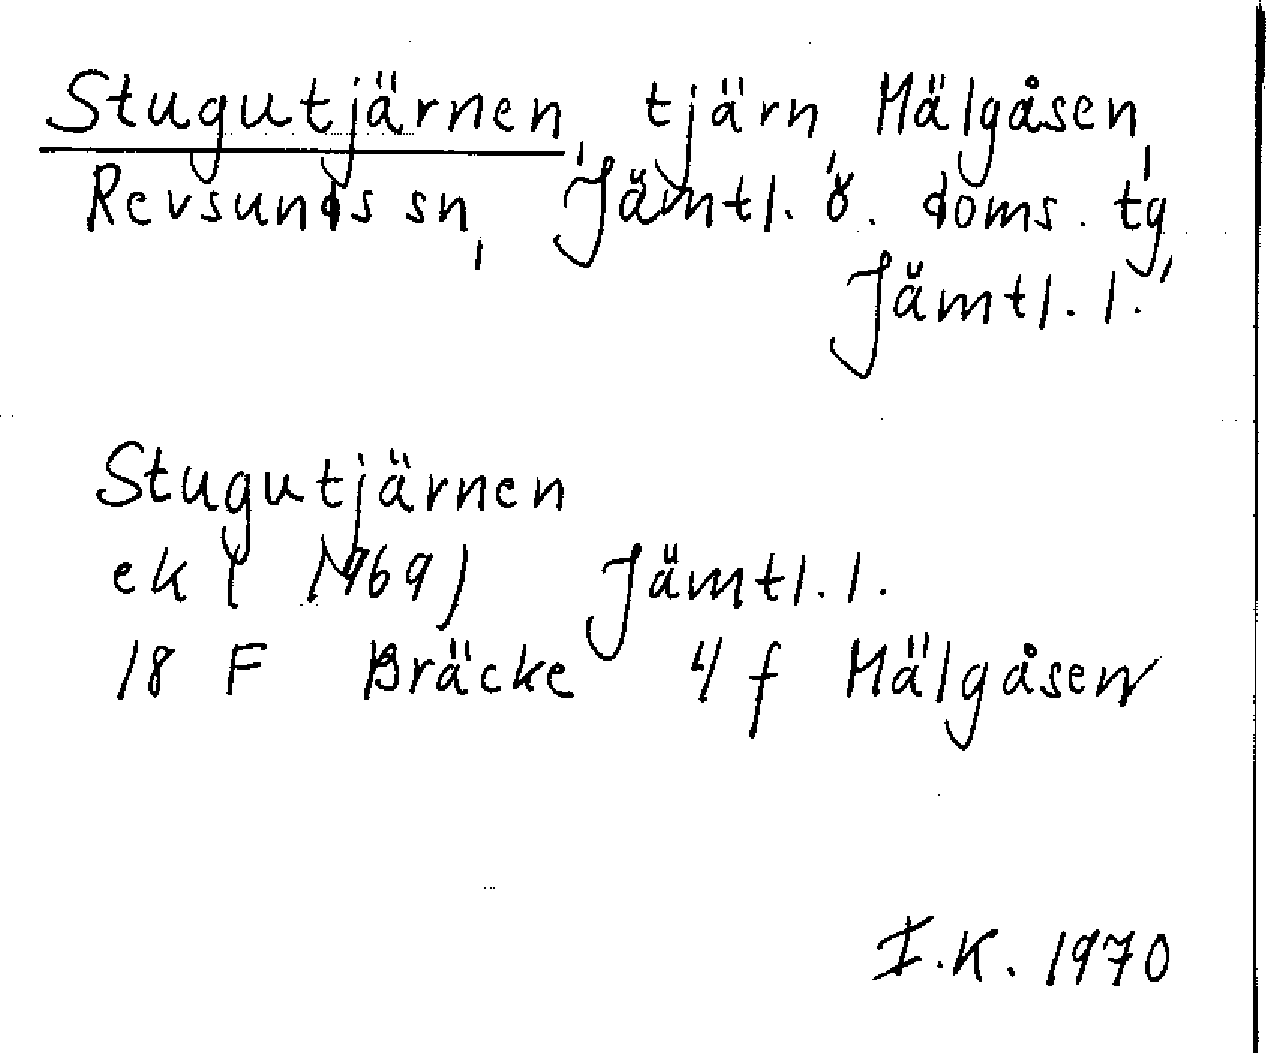 Stugutjärnen, tjärn, Mälgåsen,
Revsunds sn, Jämtl. ö. doms. tg,
Jämtl. l.
Stugutjärnen
ek ( 1969) Jämtl. l.
18 F Bräcke 4 f Mälgåsen
I.K. 1970